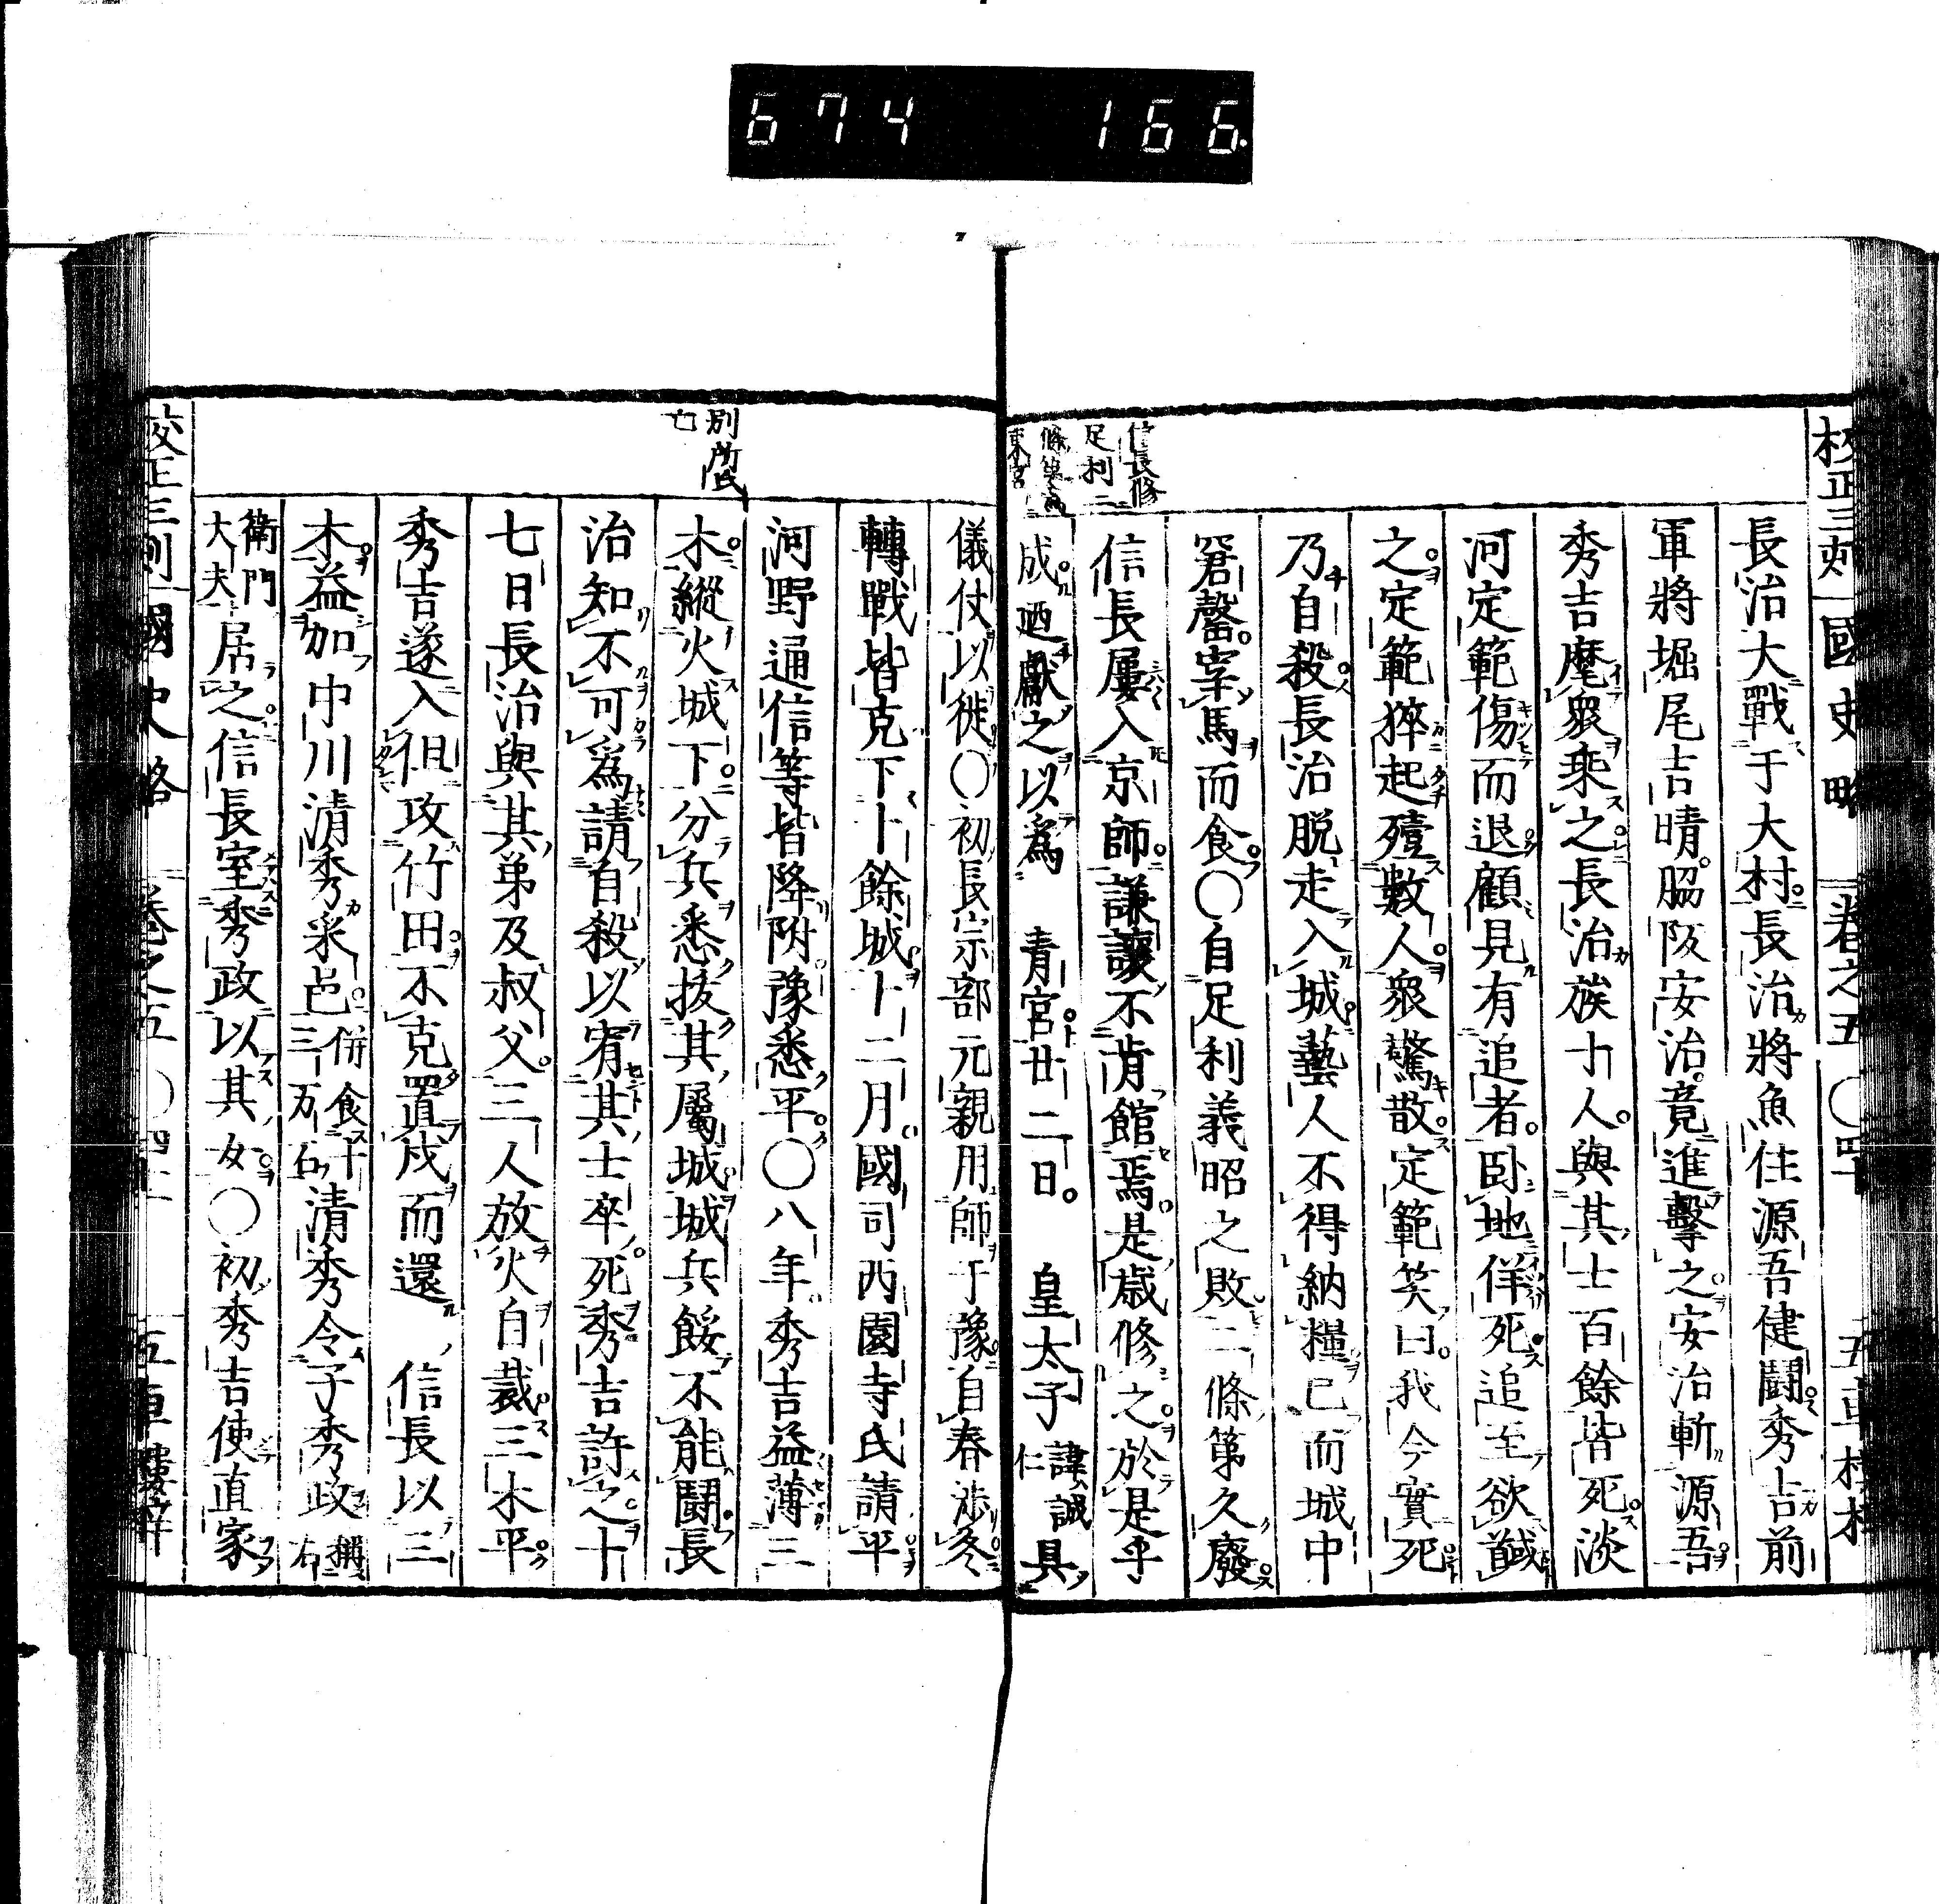 674 166
校正三刻 國史略 卷之五 〇四十 五車樓梓
長治大戰于大村長治將魚住源吾健鬪秀吉前
軍將堀尾吉晴脇阪安治竟進擊之安治斬源吾
秀吉麾衆乘之長治族十人與其士百餘皆死淡
河定範傷而退顧見有追者臥地佯死追至欲馘
之定範猝起殪數人衆驚散定範笑曰我今實死
乃自殺長治脱走入城藝人不得納糧已而城中
窘罄宰馬而食〇自足利義昭之敗二條第久廢
信長屢入京師謙讓不肯館焉是歳修之於是乎
成廼獻之以爲 青宮廿二日 皇太子諱誠仁具
信長修
足利二
條第爲
東宮
儀仗以徙〇初長宗部元親用師于豫自春渉冬
轉戰皆克下十餘城十二月國司西園寺氏請平
河野通信等皆降附豫悉平〇八年秀吉益薄三
木縱火城下分兵悉拔其屬城城兵餒不能鬪長
治知不可爲請自殺以宥其士卒死秀吉許之十
七日長治與其弟及叔父三人放火自裁三木平
秀吉遂入但攻竹田不克置戍而還 信長以三
木益加中川清秀釆邑併食十三万石清秀令子秀政稱右
衛門大夫居之信長室秀政以其女〇初秀吉使直家
別所氏
亡
校正三刻 國史略 卷之五 〇四十一 五車樓梓